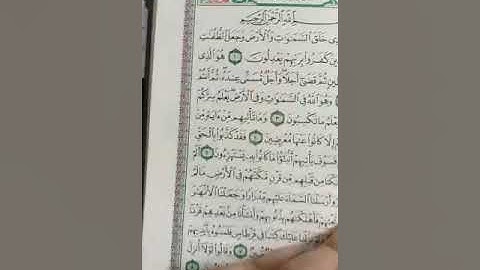 ٱللَّهِ ٱلرَّحْمَٰنِ ٱلرَّحِيمِ
خَلَقَ ٱلسَّمَٰوَٰتِ وَٱلْأَرْضَ وَجَعَلَ ٱلظُّلُمَٰتِ
كَفَرُوا۟ بِرَبِّهِمْ يَعْدِلُونَ ١ هُوَ ٱلَّذِى
ثُمَّ قَضَىٰٓ أَجَلًا وَأَجَلٌ مُّسَمًّى عِندَهُۥ ثُمَّ أَنتُمْ
وَهُوَ ٱللَّهُ فِى ٱلسَّمَٰوَٰتِ وَفِى ٱلْأَرْضِ يَعْلَمُ سِرَّكُمْ
يَعْلَمُ مَا تَكْسِبُونَ ٣ وَمَا تَأْتِيهِم مِّنْ ءَايَةٍ مِّنْ
إِلَّا كَانُوا۟ عَنْهَا مُعْرِضِينَ ٤ فَقَدْ كَذَّبُوا۟ بِٱلْحَقِّ
فَسَوْفَ يَأْتِيهِمْ أَنۢبَٰٓؤُا۟ مَا كَانُوا۟ بِهِۦ يَسْتَهْزِءُونَ ٥ أَلَمْ
مِن قَبْلِهِم مِّن قَرْنٍ مَّكَّنَّٰهُمْ فِى ٱلْأَرْضِ مَا لَمْ
وَأَرْسَلْنَا ٱلسَّمَآءَ عَلَيْهِم مِّدْرَارًا وَجَعَلْنَا ٱلْأَنْهَٰرَ
فَأَهْلَكْنَٰهُم بِذُنُوبِهِمْ وَأَنشَأْنَا مِنۢ بَعْدِهِمْ قَرْنًا
عَلَيْكَ كِتَٰبًا فِى قِرْطَاسٍ فَلَمَسُوهُ بِأَيْدِيهِمْ
وَقَالُوا۟ لَوْلَآ أُنزِلَ